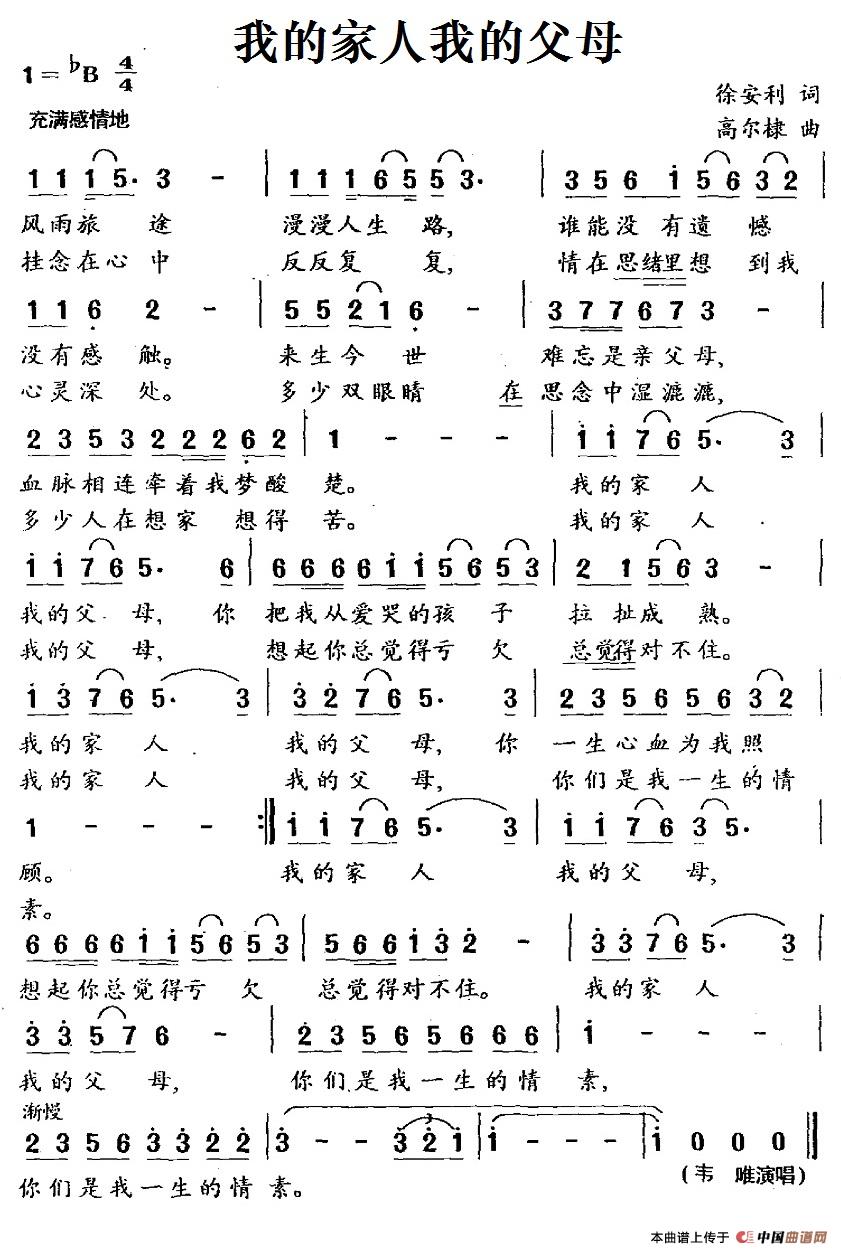 我的家人我的父母
1=♭B 4/4
徐安利 词
充满感情地
高尔棣 曲
1 1 1 5· 3 - | 1 1 1 6 5 5 3· | 3 5 6 i 5 6 3 2
风雨旅 途 漫漫人生 路, 谁能没 有遗 憾
挂念在心 中 反反复 复, 情在思绪里想 到我
1 1 6 2 - | 5 5 2 1 6 - | 3 7 7 6 7 3 -
没有感 触。 来生今 世 难忘是亲父母,
心灵深 处。 多少双眼睛 在思念中湿漉漉,
2 3 5 3 2 2 2 6 2 | 1 - - - | i i 7 6 5· 3
血脉相连牵着我梦酸 楚。 我的家 人
多少人在想家 想得 苦。 我的家 人
i i 7 6 5· 6 | 6 6 6 6 i i 5 6 5 3 | 2 1 5 6 3 -
我的父 母, 你 把我从爱哭的孩 子 拉扯成 熟。
我的父 母, 想起你总觉得亏 欠 总觉得对不住。
i 3 7 6 5· 3 | 3 2 7 6 5· 3 | 2 3 5 6 5 6 3 2
我的家 人 我的父 母, 你 一生心血为我照
我的家 人 我的父 母, 你们是我一生的情
1 - - - :|| i i 7 6 5· 3 | i i 7 6 3 5·
顾。 我的家 人 我的父 母,
素。
6 6 6 6 i i 5 6 5 3 | 5 6 6 i 3 2 - | 3 3 7 6 5· 3
想起你总觉得亏 欠 总觉得对不住。 我的家 人
3 3 5 7 6 - | 2 3 5 6 5 6 6 6 | i - - -
我的父 母, 你们是我一生的情 素,
渐慢
2 3 5 6 3 3 2 2 | 3 - - 3 2 i | i - - - | i 0 0 0 ||
你们是我一生的情 素。
(韦 唯演唱)
本曲谱上传于 中国曲谱网